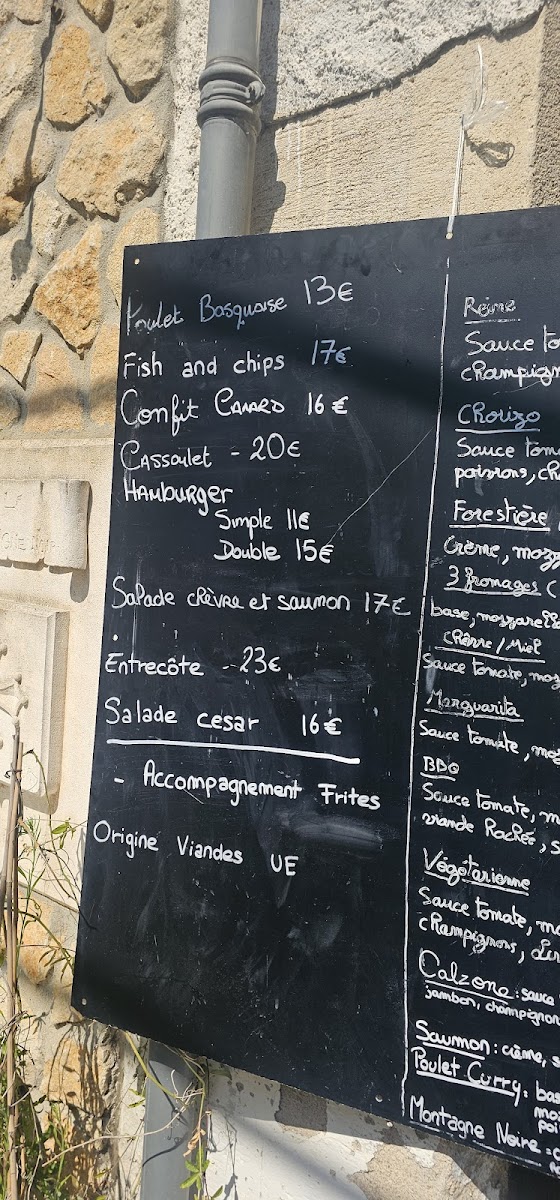 Poulet Basquaise 13€
Fish and chips 17€
Confit CANARD 16€
CASSOULET - 20€
HAMBURGER
Simple 11€
Double 15€
Salade chèvre et saumon 17€
Entrecôte - 23€
Salade cesar 16€
- Accompagnement Frites
Origine Viandes UE
Reine
Sauce to
champign
Chorizo
Sauce tom
poivrons, ch
Forestière
Crème, mozz
3 fromages (
base, mozzarell
Chèvre / Miel
Sauce tomate, moz
Marguarita
Sauce tomate, moz
BBQ
Sauce tomate, m
viande Hachée, s
Végétarienne
Sauce tomate, mo
champignons,
Calzone : sauce
jambon, champignon
Saumon : crème, s
Poulet Curry : bas
Montagne Noire :